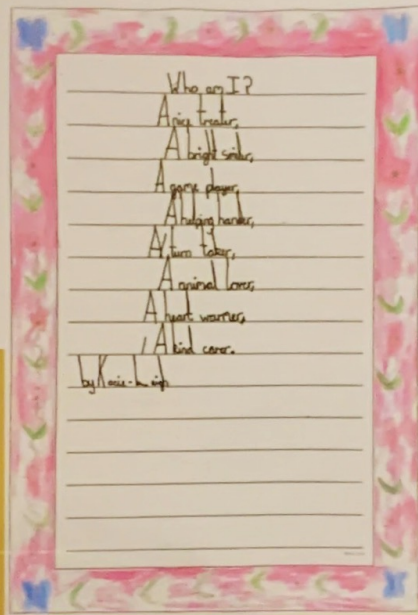 Who am I?
A nice treater,
A bright smiler,
A game player,
A helping hander,
A turn taker,
A animal lover,
A heart warmer,
A kind carer.
by Kacie-Leigh